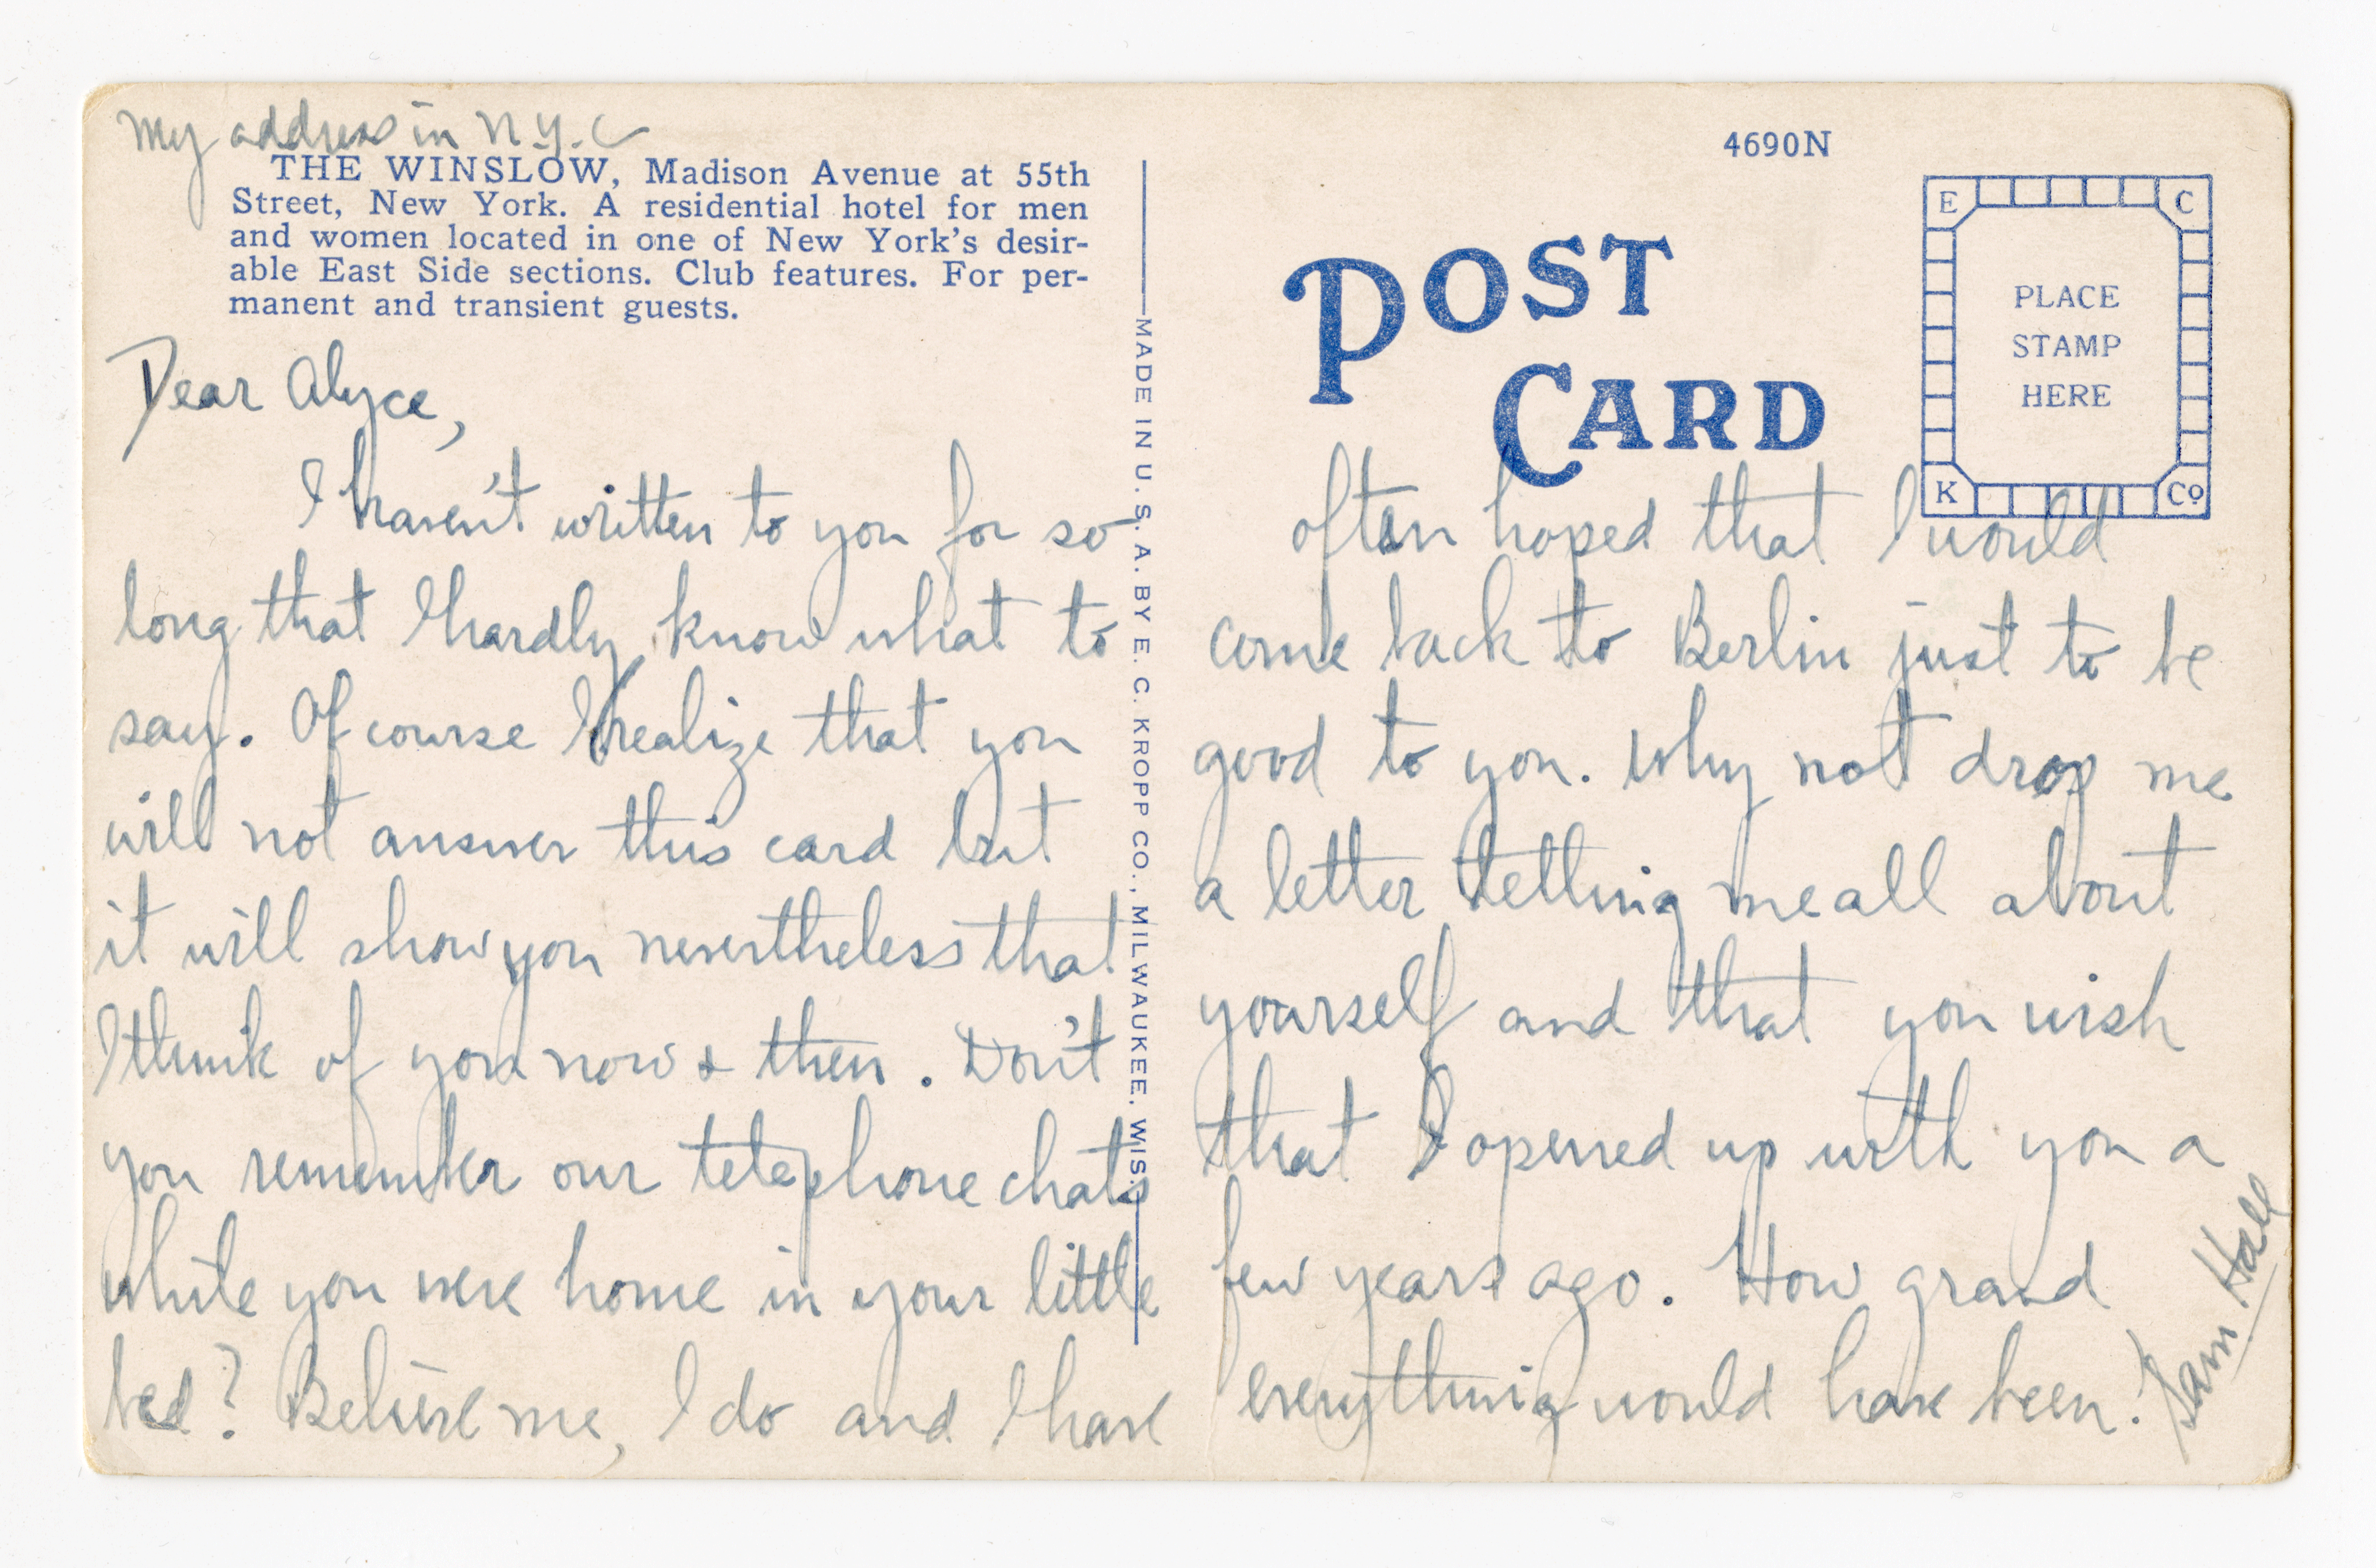 My address in N.Y.C
THE WINSLOW, Madison Avenue at 55th
Street, New York. A residential hotel for men
and women located in one of New York's desir-
able East Side sections. Club features. For per-
manent and transient guests.
Dear Alyce,
I haven't written to you for so
long that I hardly know what to
say. Of course I realize that you
will not answer this card but
it will show you nevertheless that
I think of you now & then. Don't
you remember our telephone chats
while you were home in your little
bed? Believe me, I do and I have
MADE IN U. S. A. BY E. C. KROPP CO., MILWAUKEE. WIS.
4690N
POST
CARD
E C
PLACE
STAMP
HERE
K Co
often hoped that I would
come back to Berlin just to be
good to you. Why not drop me
a letter telling me all about
yourself and that you wish
that I opened up with you a
few years ago. How grand
everything would have been!
Sam Hall